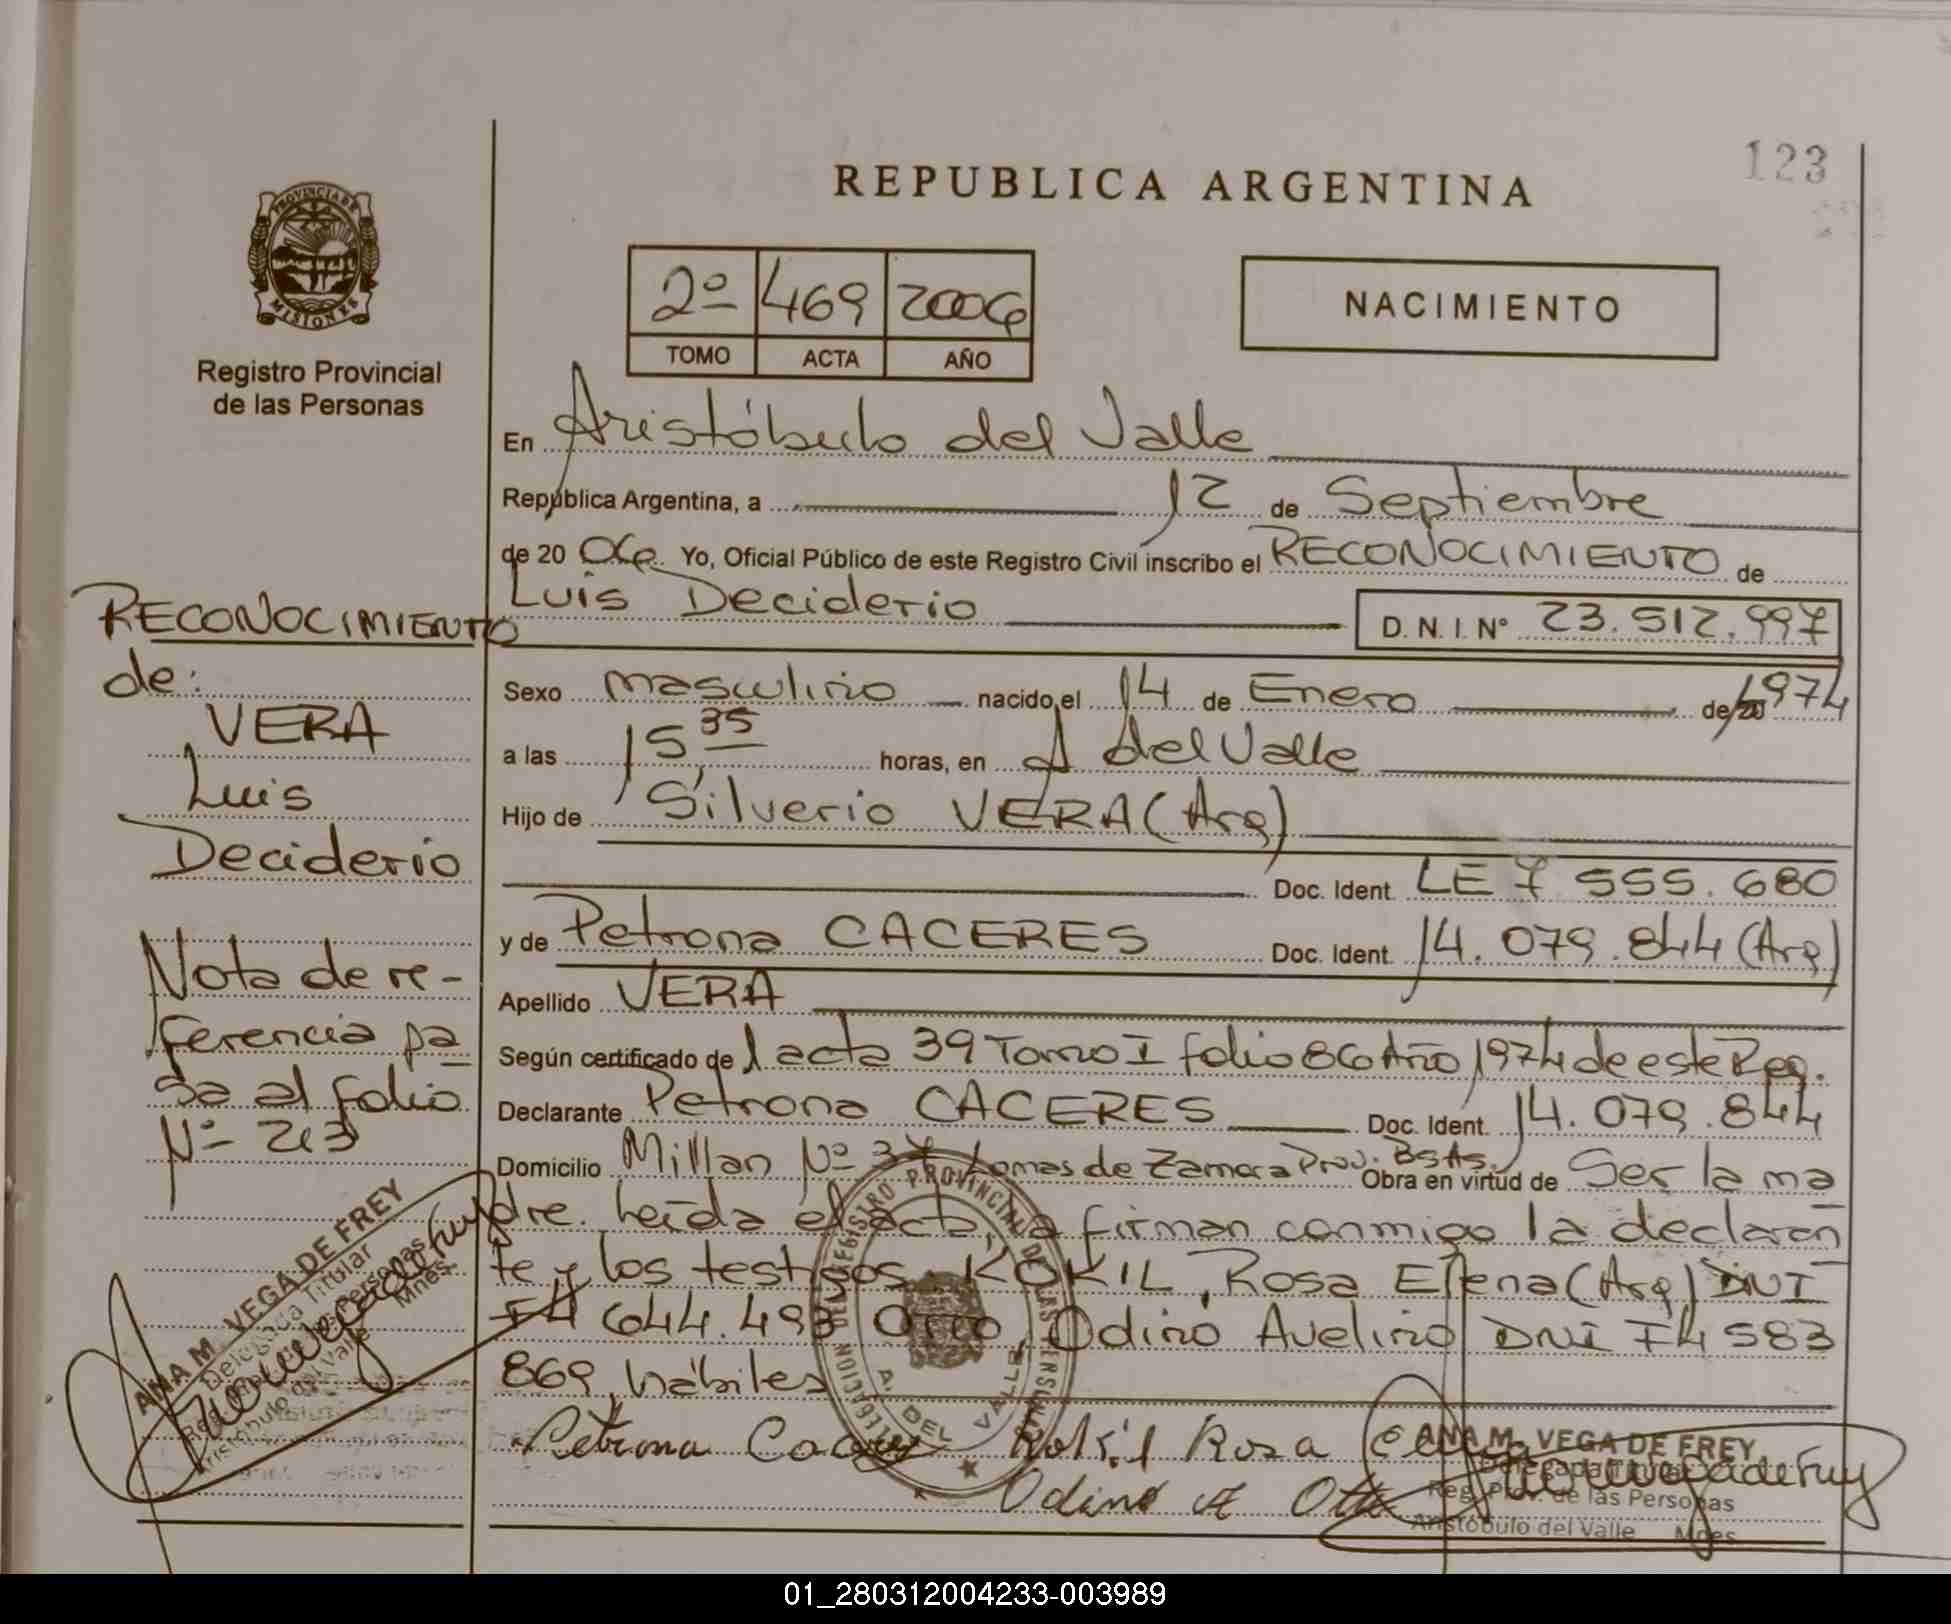 123
REPUBLICA ARGENTINA
PROVINCIA DE
MISIONES
Registro Provincial
de las Personas
2º 469 2006
TOMO ACTA AÑO
NACIMIENTO
En Aristóbulo del Valle
República Argentina, a 12 de Septiembre
de 20 06 Yo, Oficial Público de este Registro Civil inscribo el RECONOCIMIENTO de
Luis Deciderio D. N. I. Nº 23.512.997
Sexo masculino nacido el 14 de Enero de 1974
a las 15,35 horas, en A del Valle
Hijo de Silverio VERA (Arg)
Doc. Ident. LE 7 555.680
y de Petrona CACERES Doc. Ident. 14.079.844 (Arg)
Apellido VERA
Según certificado de l acta 39 Tomo I folio 86 Año 1974 de este Reg.
Declarante Petrona CACERES Doc. Ident. 14.079.844
Domicilio Millan Nº 37 Lomas de Zamora Prov. Bs As. Obra en virtud de Ser la ma
dre. Leída el acta, la firman conmigo la declaran
te y los testigos, KOKIL, Rosa Elena (Arg) DNI
F4 644.493 Odino Avelino DNI F4 583
869, hábiles
RECONOCIMIENTO
de:
VERA
Luis
Deciderio
Nota de re-
ferencia pa
sa al folio
Nº 213
ANA M. VEGA DE FREY
Delegada Titular
Reg. Prov. de las Personas
Aristóbulo del Valle Mnes
DELEGACION DEL REGISTRO PROVINCIAL DE LAS PERSONAS
A. DEL VALLE
Petrona Caceres Kokil Rosa
Odino A
ANA M. VEGA DE FREY
Delegada Titular
Reg. Prov. de las Personas
Aristóbulo del Valle Mnes
01_280312004233-003989